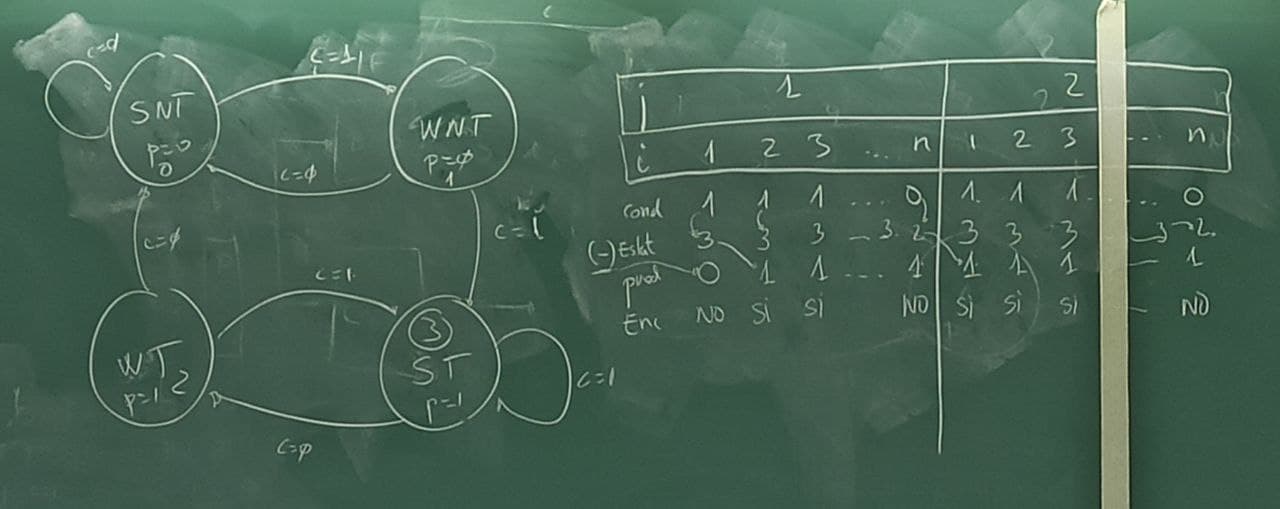 c=ø
SNT
p=0
0
c=1
WNT
p=ø
1
c=ø
c=ø
c=1
c=1
WT
2
p=1
3
ST
p=1
c=1
c=ø
j 1 2
i 1 2 3 ... n 1 2 3 ... n
Cond 1 1 1 .... 0 1 1 1 ..... 0
(-) Estat 3 3 3 3 2 3 3 3 3 2
pred 0 1 1 .... 1 1 1 1 1
Enc NO SI SI NO SI SI SI NO